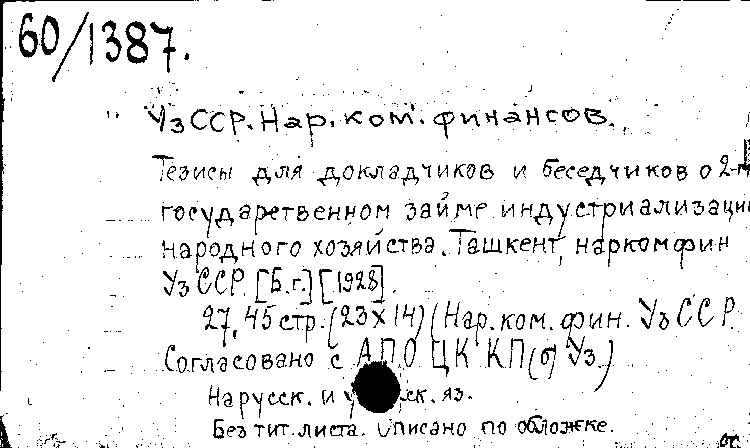 60/1387.
УзССР. Нар. ком. финансов.
Тезисы для докладчиков и беседчиков о 2-м
государственном займе индустриализации
народного хозяйства. Ташкент, наркомфин
УзССР. [Б.г.] [1928].
27, 45 стр. (23х14) (Нар. ком. фин. УзССР.
Согласовано с АПО ЦК КП(б) Уз.)
На русск. и яз.
Без тит. листа. Описано по обложке.